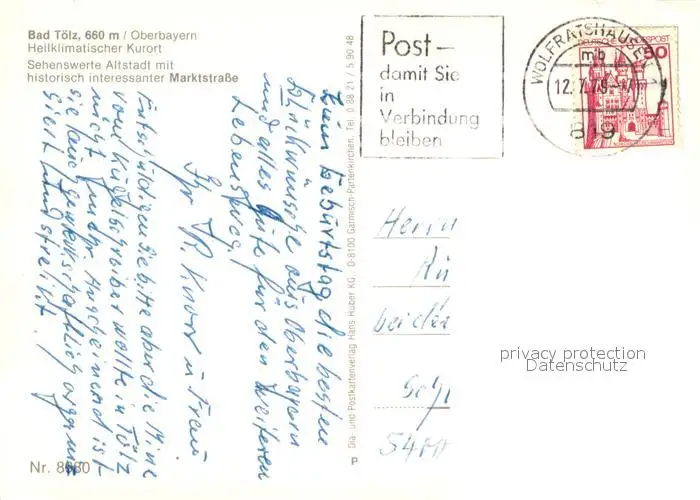 Bad Tölz, 660 m / Oberbayern
Heilklimatischer Kurort
Sehenswerte Altstadt mit
historisch interessanter Marktstraße
Zum Geburtstag die besten
Glückwünsche aus Oberbayern
und alles Gute für den weiteren
Lebensweg.
Ihr R. Knorr u. Frau
Entschuldigen Sie bitte aber die Mine
vom Kugelschreiber wollte in Tölz
nicht mehr. Anscheinend ist
sie auch gewerkschaftlich organi-
siert und streikt!
Nr. 8680
Dia- und Postkartenverlag Hans Huber KG D-8100 Garmisch-Partenkirchen, Tel. 0 88 21 / 5 90 48
P
Post –
damit Sie
in
Verbindung
bleiben
WOLFRATSHAUSEN 1
mb
12.7.79
819
DEUTSCHE BUNDESPOST
50
Herrn
bei der
privacy protection
Datenschutz